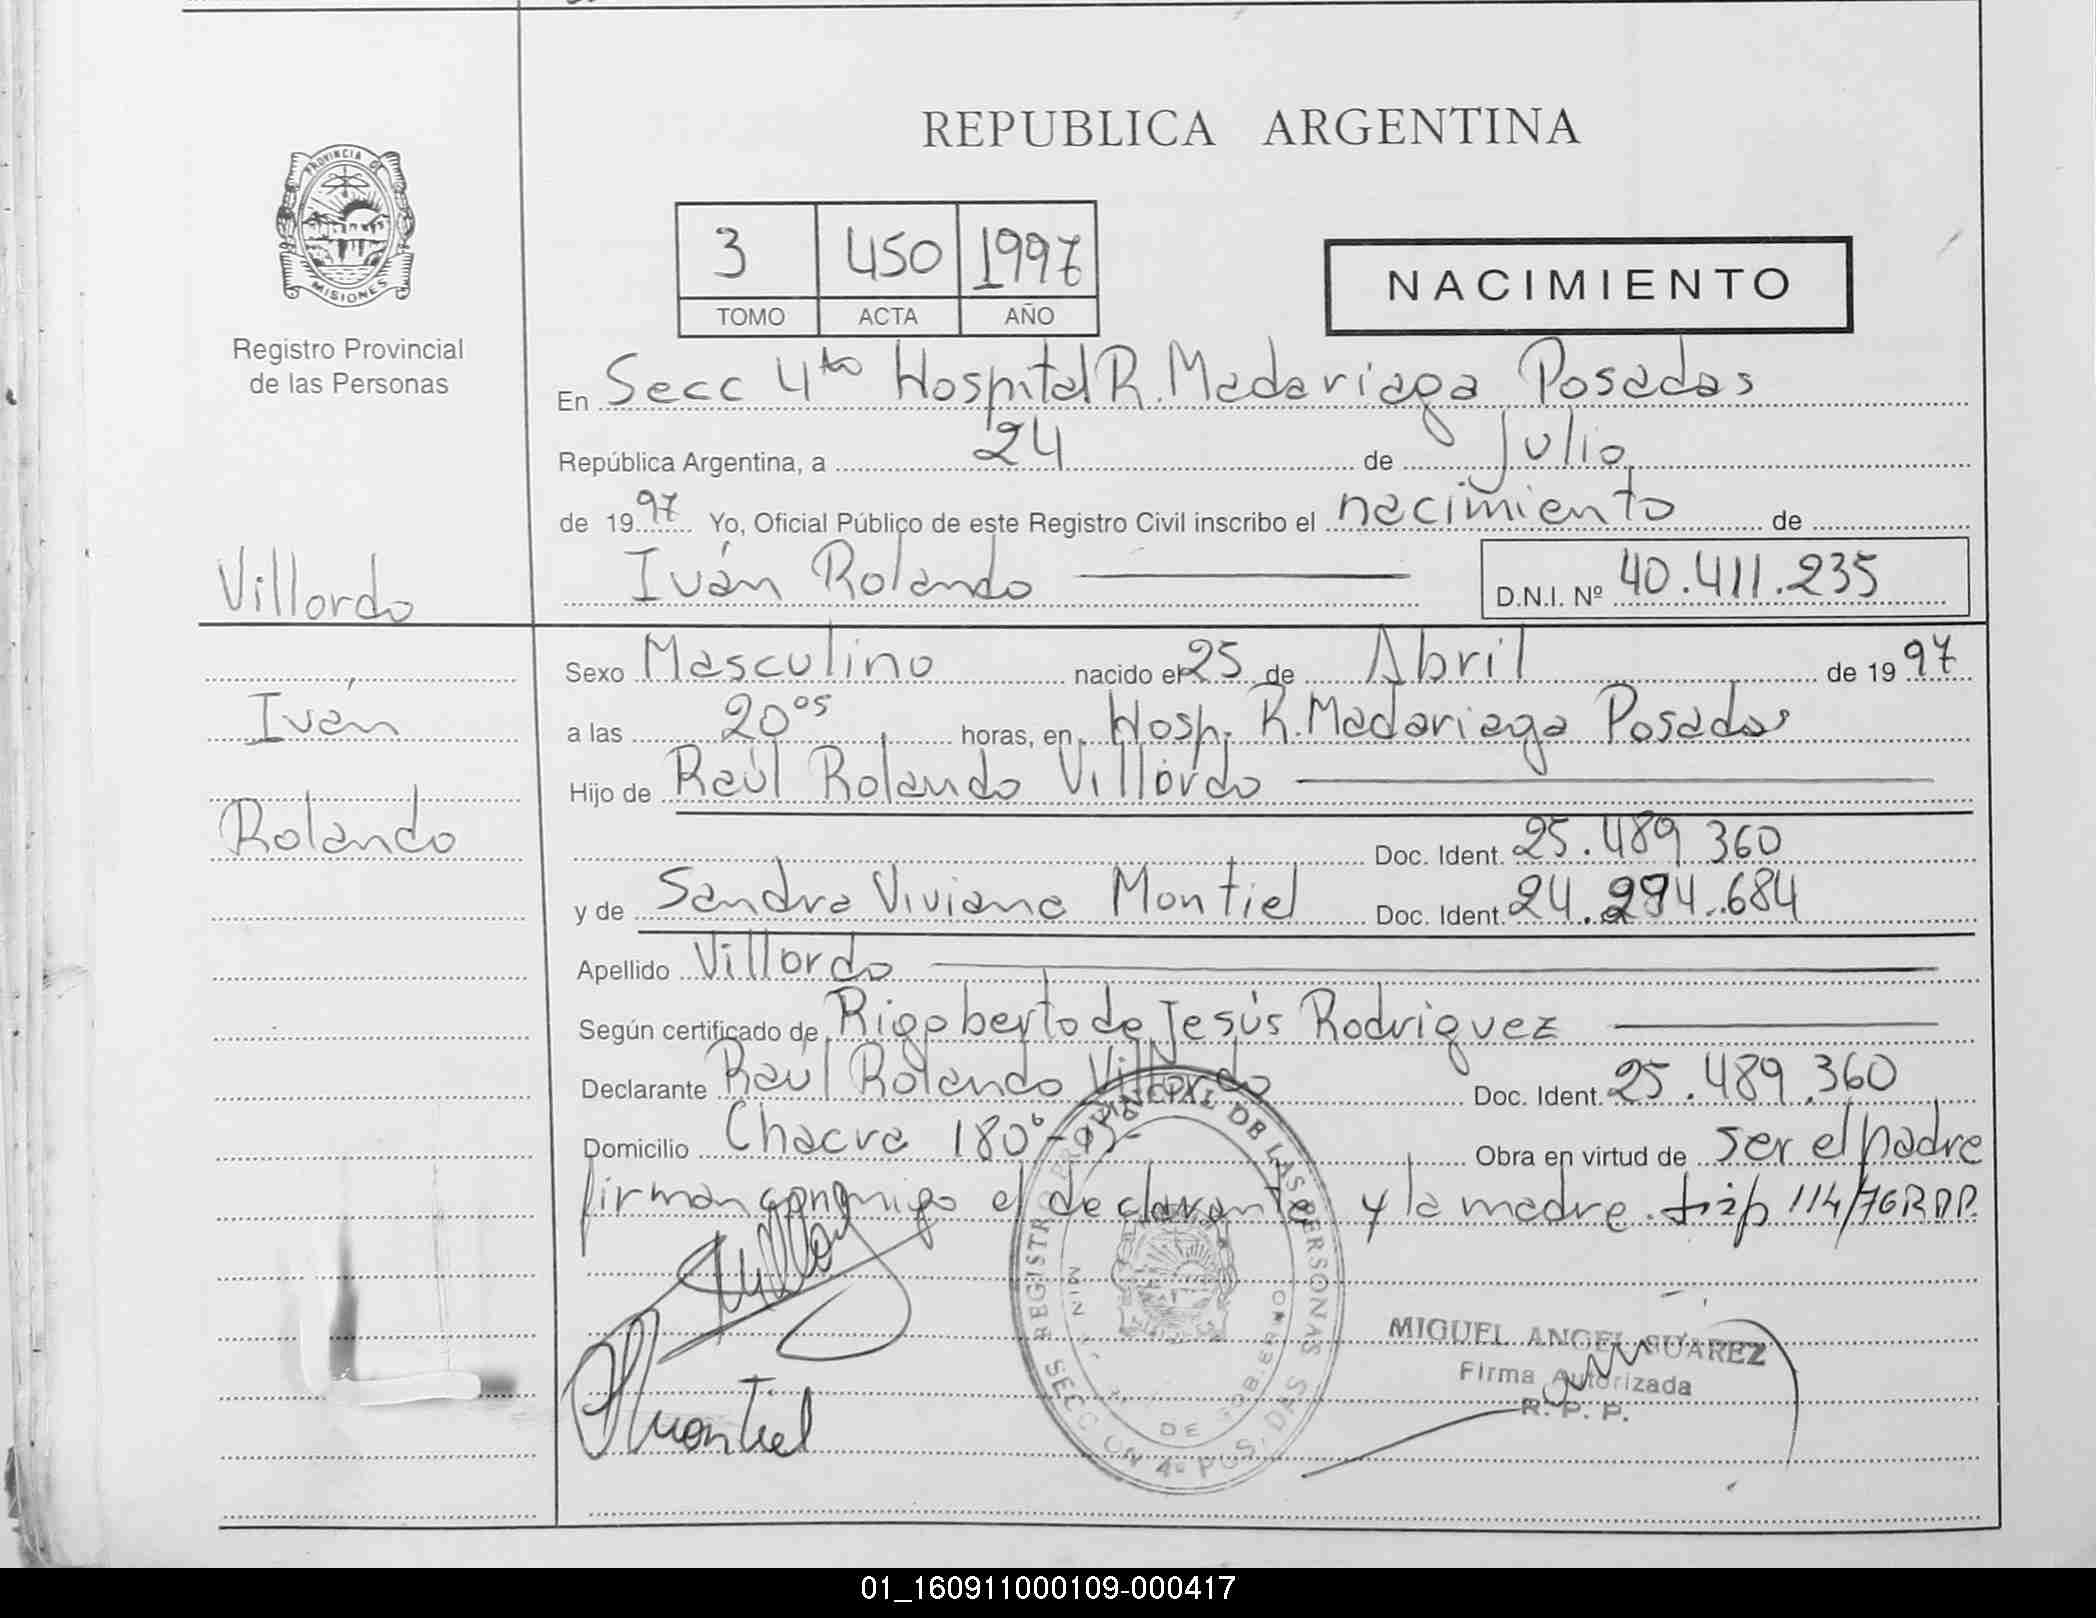 REPUBLICA ARGENTINA
PROVINCIA DE
MISIONES
Registro Provincial
de las Personas
3 450 1997
TOMO ACTA AÑO
NACIMIENTO
En Secc 4ta Hospital R. Madariaga Posadas
República Argentina, a 24 de Julio
de 1997 Yo, Oficial Público de este Registro Civil inscribo el nacimiento de
Iván Rolando D.N.I. Nº 40.411.235
Villordo
Iván
Rolando
Sexo Masculino nacido el 25 de Abril de 1997
a las 20 05 horas, en Hosp. R. Madariaga Posadas
Hijo de Raúl Rolando Villordo
Doc. Ident. 25.489 360
y de Sandra Viviana Montiel Doc. Ident. 24.294.684
Apellido Villordo
Según certificado de Rigoberto de Jesús Rodriguez
Declarante Raúl Rolando Villordo Doc. Ident. 25.489.360
Domicilio Chacra 180 Obra en virtud de ser el padre
firman conmigo el declarante y la madre. 114/76 R.P.P.
REGISTRO PROVINCIAL DE LAS PERSONAS
DE GOBIERNO
SECCION 4º POSADAS
MIGUEL ANGEL SUAREZ
Firma Autorizada
R. P. P.
Montiel
01_160911000109-000417